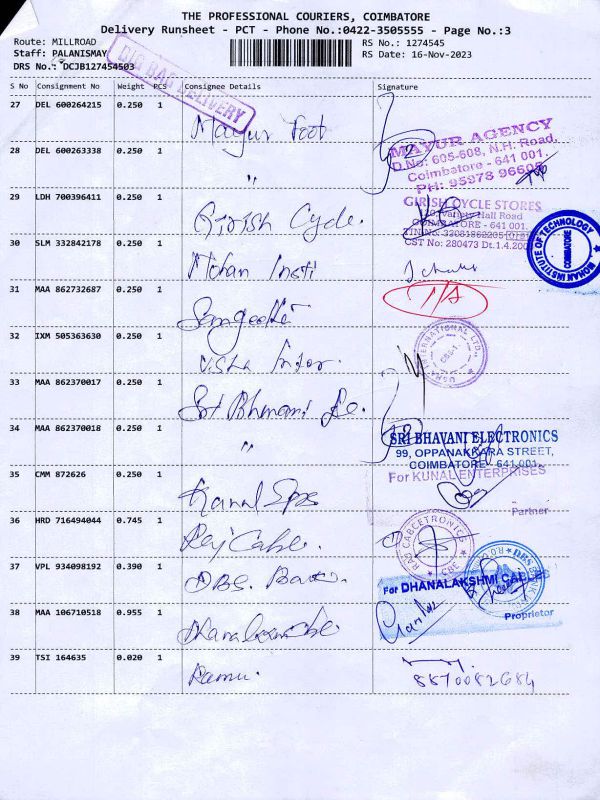 THE PROFESSIONAL COURIERS, COIMBATORE
Delivery Runsheet - PCT - Phone No.:0422-3505555 - Page No.:3
Route: MILLROAD
RS No.: 1274545
Staff: PALANISMAY
RS Date: 16-Nov-2023
DRS No.: DCJB127454503
DELIVERY
S No Consignment No Weight PCS Consignee Details Signature
27 DEL 600264215 0.250 1 Mayur
MAYUR AGENCY
D.No: 605-608, N.H. Road,
Coimbatore - 641 001.
28 DEL 600263338 0.250 1 "
PH: 95978
29 LDH 700396411 0.250 1 Girish Cycle.
GIRISH CYCLE STORES
Variety Hall Road
COIMBATORE - 641 001.
CST No: 280473 Dt.1.4.200
30 SLM 332842178 0.250 1 Mohan Insti
MOHAN INSTITUTE OF TECHNOLOGY
COIMBATORE
31 MAA 862732687 0.250 1 Sangeetha
32 IXM 505363630 0.250 1
INTERNATIONAL LTD.
33 MAA 862370017 0.250 1 Sri Bhavani Ele.
34 MAA 862370018 0.250 1 "
SRI BHAVANI ELECTRONICS
99, OPPANAKKARA STREET,
COIMBATORE - 641 001.
35 CMM 872626 0.250 1
For KUNAL ENTERPRISES
Partner
36 HRD 716494044 0.745 1 Raj Cable.
37 VPL 934098192 0.390 1 DBS. Bank.
For DHANALAKSHMI CABLES
Proprietor
38 MAA 106710518 0.955 1
39 TSI 164635 0.020 1 Ramu.
8870082684